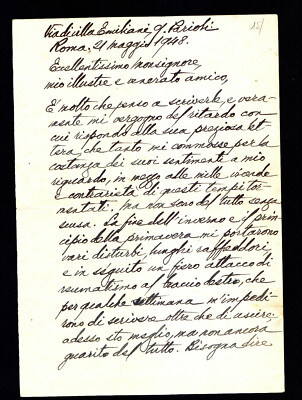 Via di villa Emiliani, 9. Parioli
Roma, 21 maggio 1948.
Eccellentissimo Monsignore,
mio illustre e venerato amico,
È molto che penso a scriverle, e vera-
mente mi vergogno del ritardo con
cui rispondo alla sua preziosa let-
tera, che tanto mi commosse per la
costanza dei suoi sentimenti a mio
riguardo, in mezzo alle mille vicende
e contrarietà di questi tempi tor-
mentati. Ma non sono del tutto senza
scusa. La fine dell'inverno e il prin-
cipio della primavera mi portarono
vari disturbi, lunghi raffreddori
e in seguito un fiero attacco di
reumatismo al braccio destro, che
per qualche settimana m'impedi-
rono di scrivere oltre che di uscire.
Adesso sto meglio, ma non ancora
guarito del tutto. Bisogna dire
15/